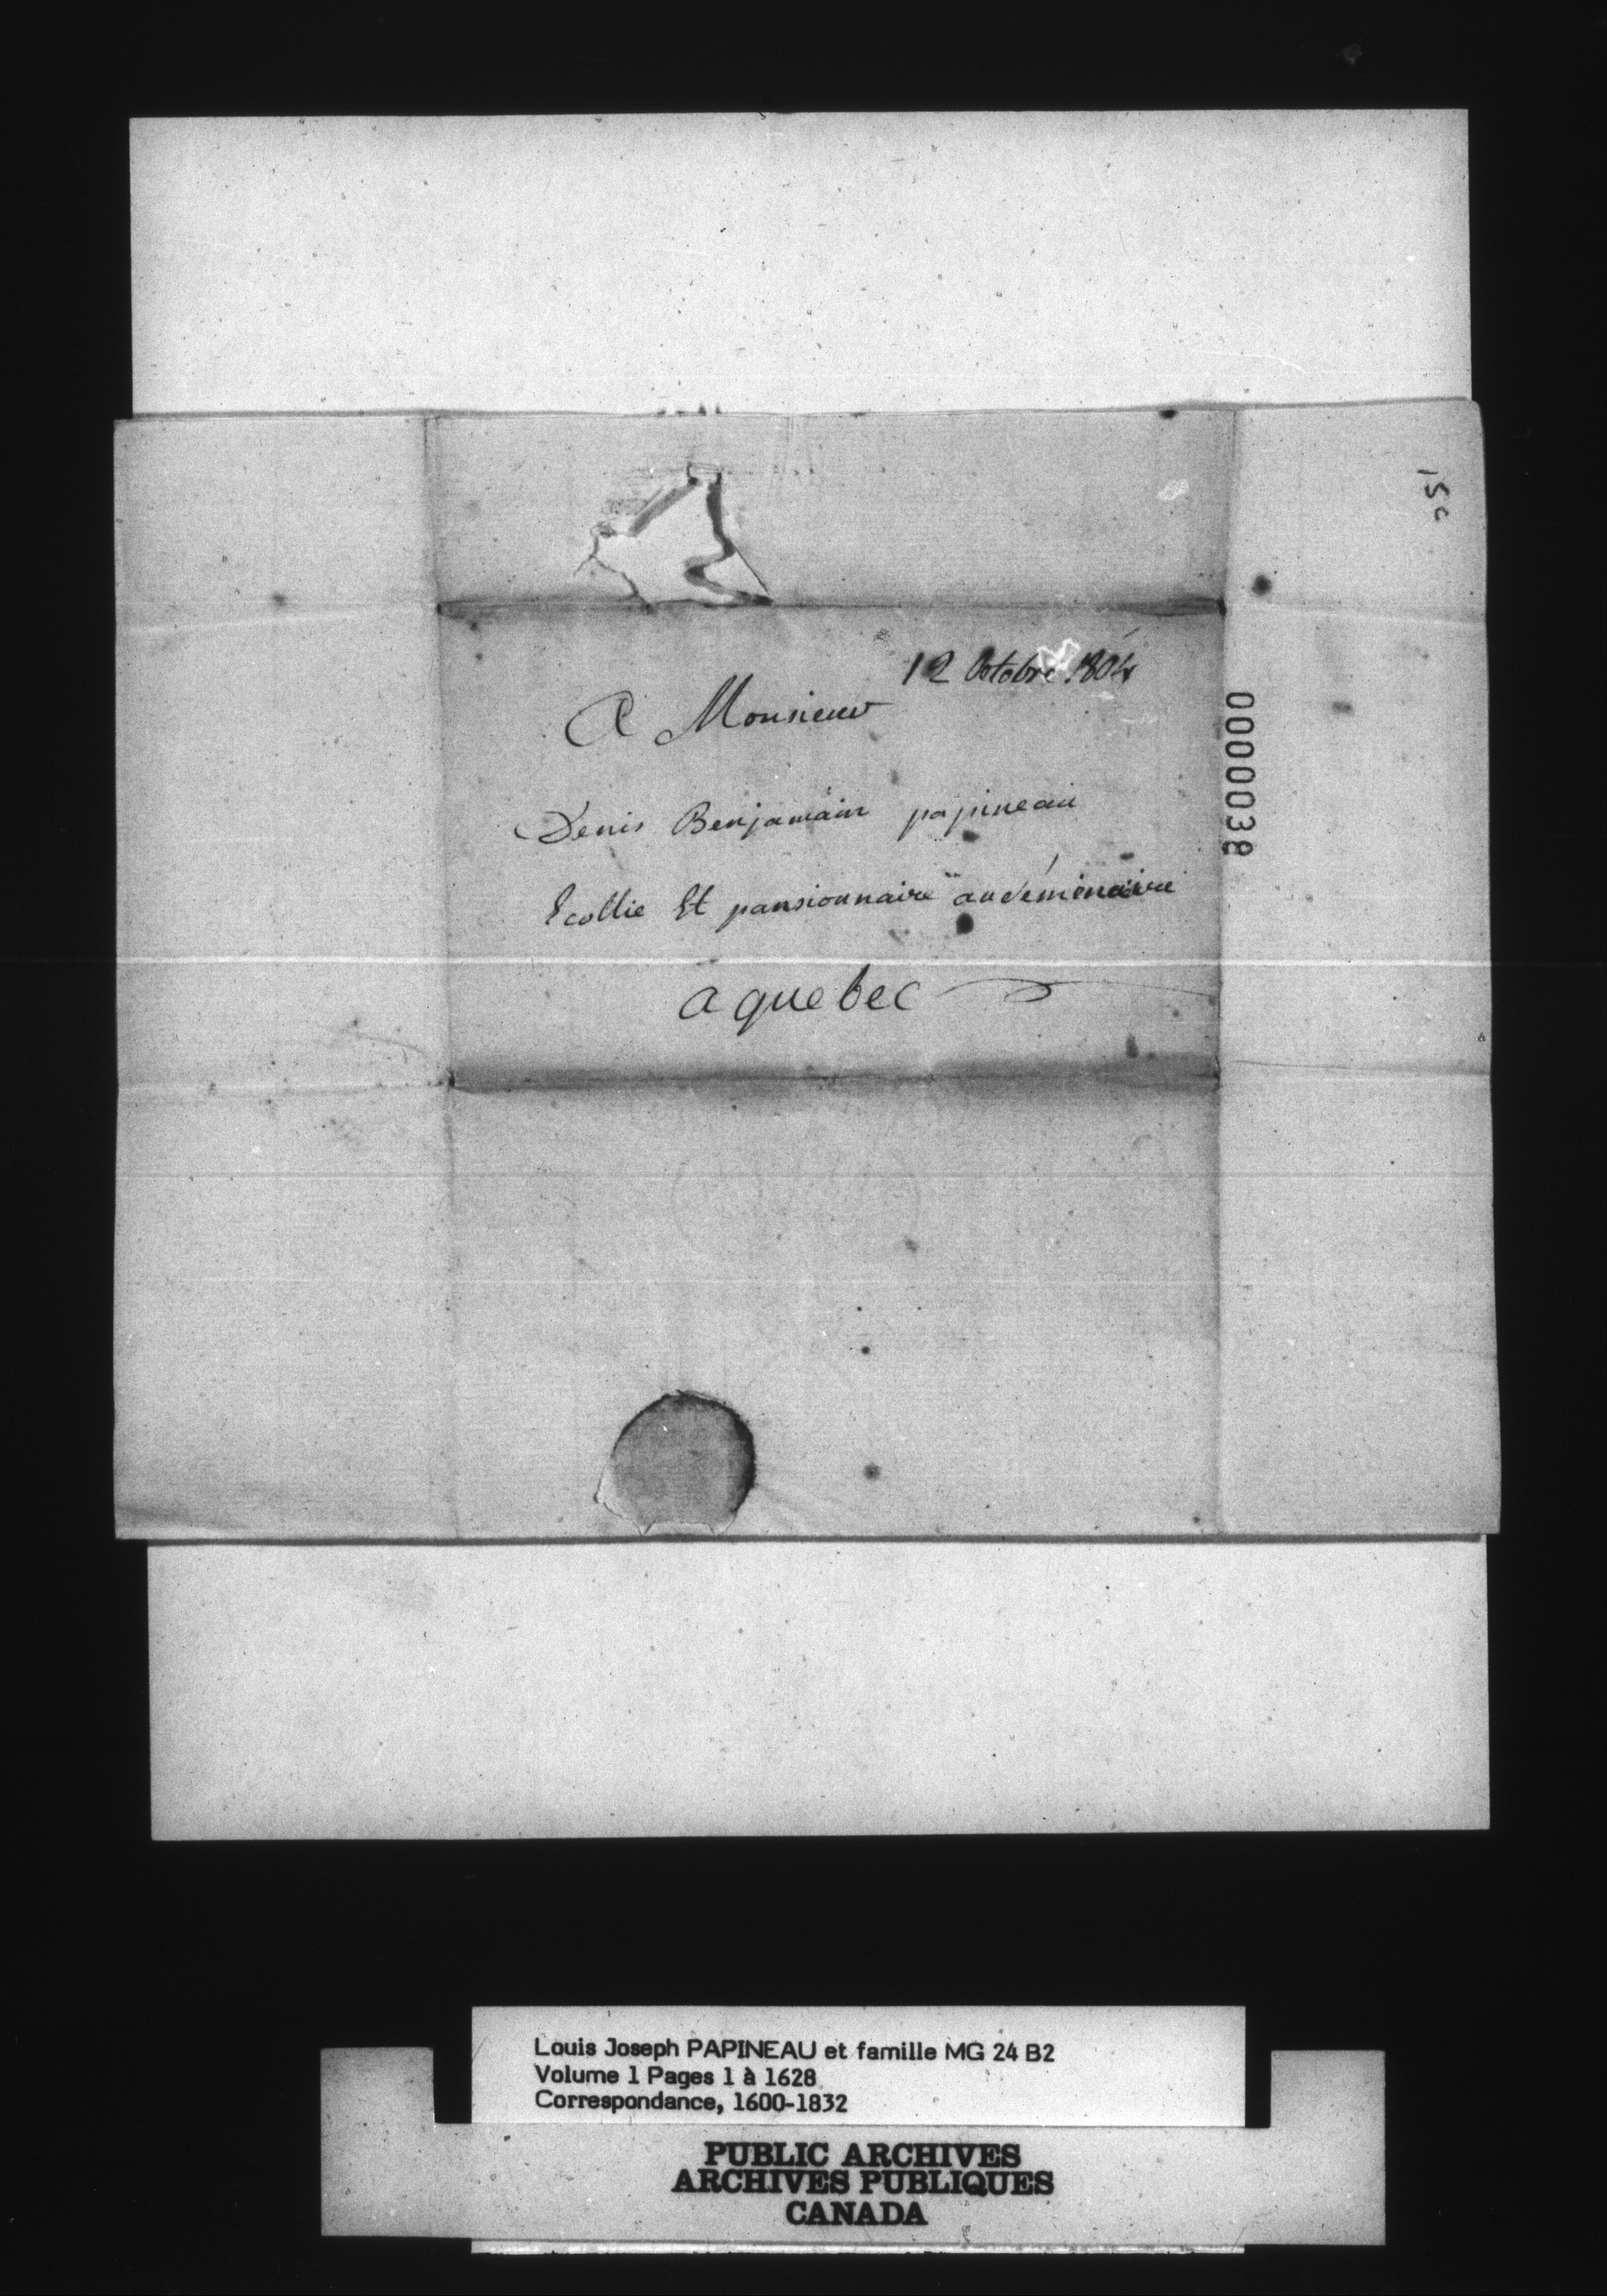 12 Octobre 1804
A Monsieur
Denis Benjamain papineau
Ecollie Et pansionnaire au séminaire
a quebec
0000038
Louis Joseph PAPINEAU et famille MG 24 B2
Volume 1 Pages 1 à 1628
Correspondance, 1600-1832
PUBLIC ARCHIVES
ARCHIVES PUBLIQUES
CANADA